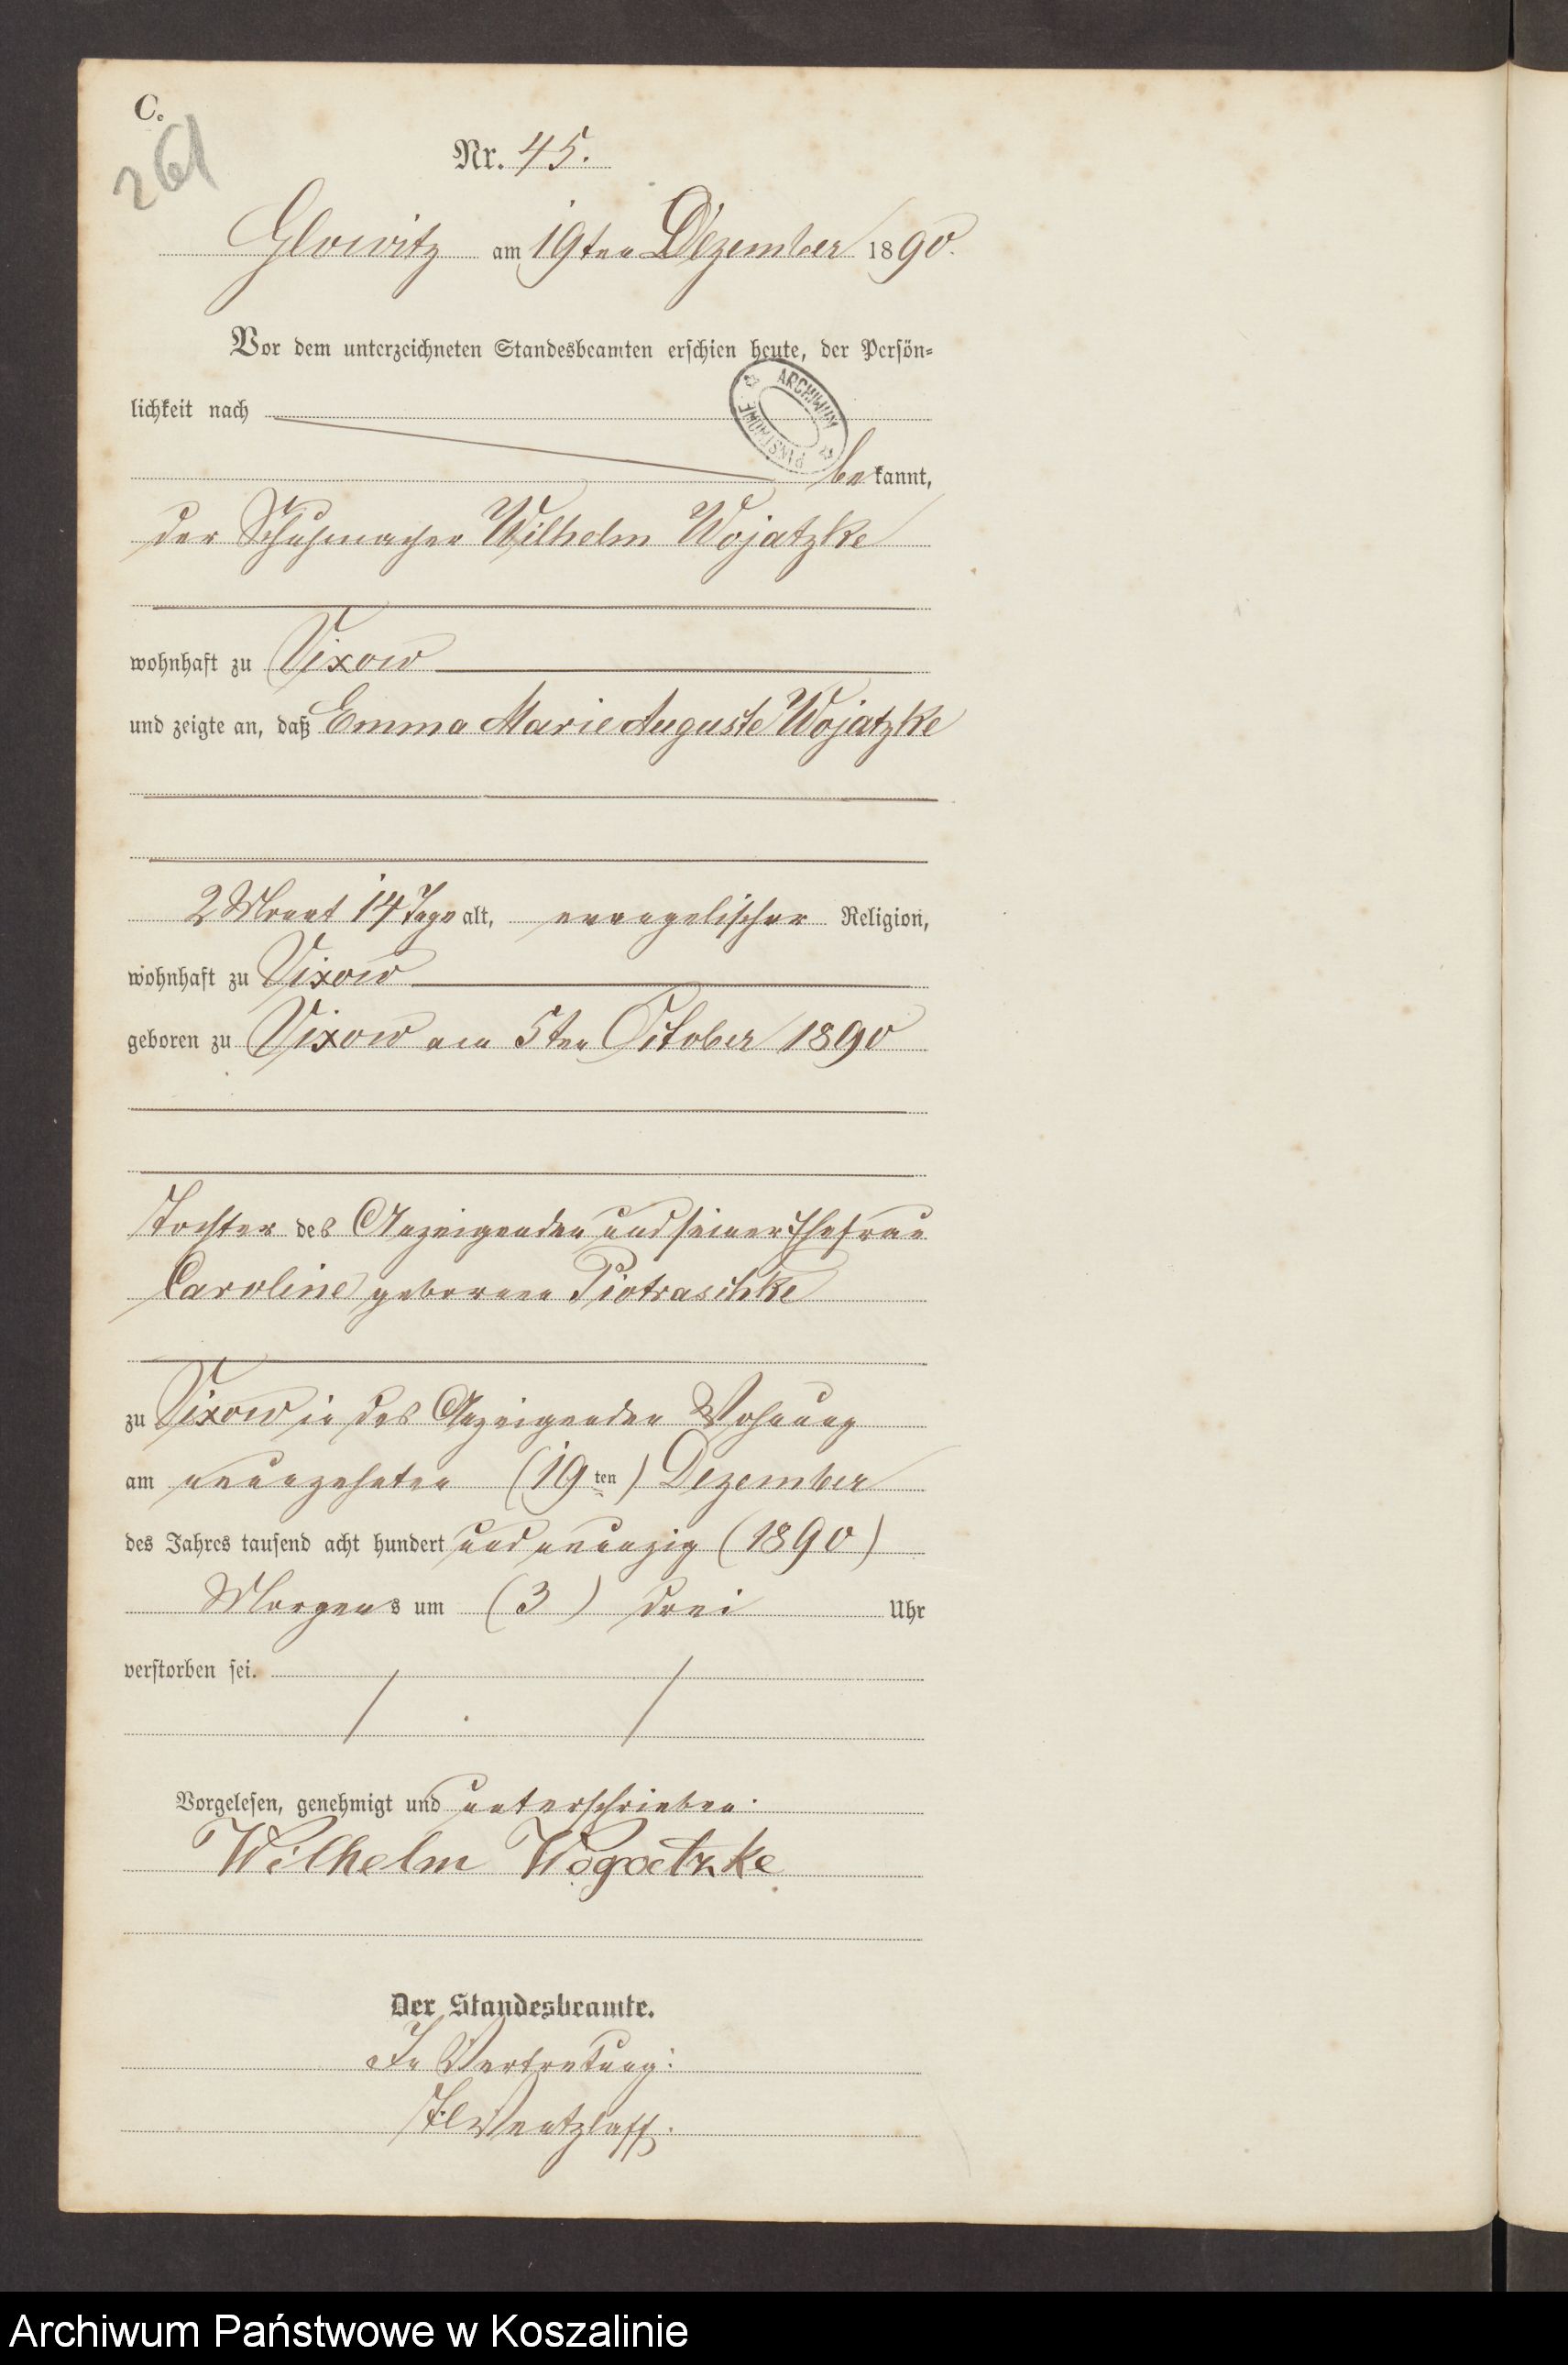 C.
261
Nr. 45.
Glowitz am 19ten Dezember 1890.
Vor dem unterzeichneten Standesbeamten erschien heute, der Persön-
lichkeit nach
ARCHIWUM PAŃSTWOWE
bekannt,
der Schuhmacher Wilhelm Wojatzke
wohnhaft zu Vixow
und zeigte an, daß Emma Marie Auguste Wojatzke
2 Monat 14 Tage alt, evangelischer Religion,
wohnhaft zu Vixow
geboren zu Vixow am 5ten October 1890
Tochter des Anzeigenden und seiner Ehefrau
Caroline geborenen Piotraschke
zu Vixow in des Anzeigenden Wohnung
am neunzehnten (19ten) Dezember
des Jahres tausend acht hundert und neunzig (1890)
Morgens um (3) drei Uhr
verstorben sei.
Vorgelesen, genehmigt und unterschrieben.
Wilhelm Wogaetzke
Der Standesbeamte.
In Vertretung:
Wentzlaff.
Archiwum Państwowe w Koszalinie